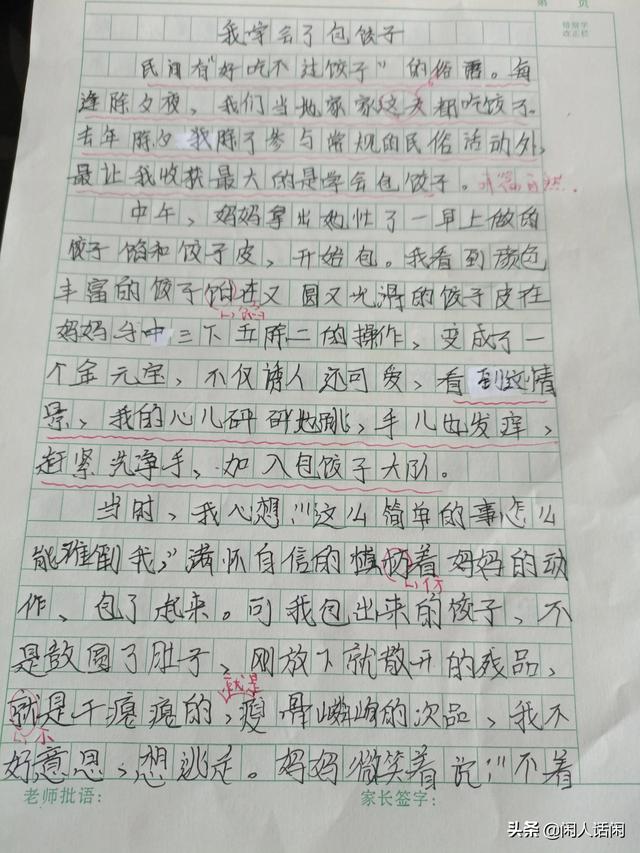 第 页
错别字
改正栏
我学会了包饺子
民间有"好吃不过饺子"的俗语。每
逢除夕夜，我们当地家家这天都吃饺子。
去年除夕我除了参与常规的民俗活动外，
最让我收获最大的是学会包饺子。
中午，妈妈拿出她忙了一早上做的
饺子馅和饺子皮，开始包。我看到颜色
丰富的饺子馅在又圆又光滑的饺子皮在
妈妈手中三下五除二的操作，变成了一
个金元宝，不仅诱人还可爱，看到这情
景，我的心儿砰砰地跳，手儿也发痒，
赶紧洗净手，加入包饺子大队。
当时，我心想:"这么简单的事怎么
能难倒我，"满怀自信的模仿着妈妈的动
作，包了起来。可我包出来的饺子，不
是鼓圆了肚子、刚放下就散开的残品，
就是
就是干瘪瘪的，瘦骨嶙峋的次品，我不
不
好意思，想逃走。妈妈微笑着说:"不着
老师批语： 家长签字：
头条 @闲人话闲